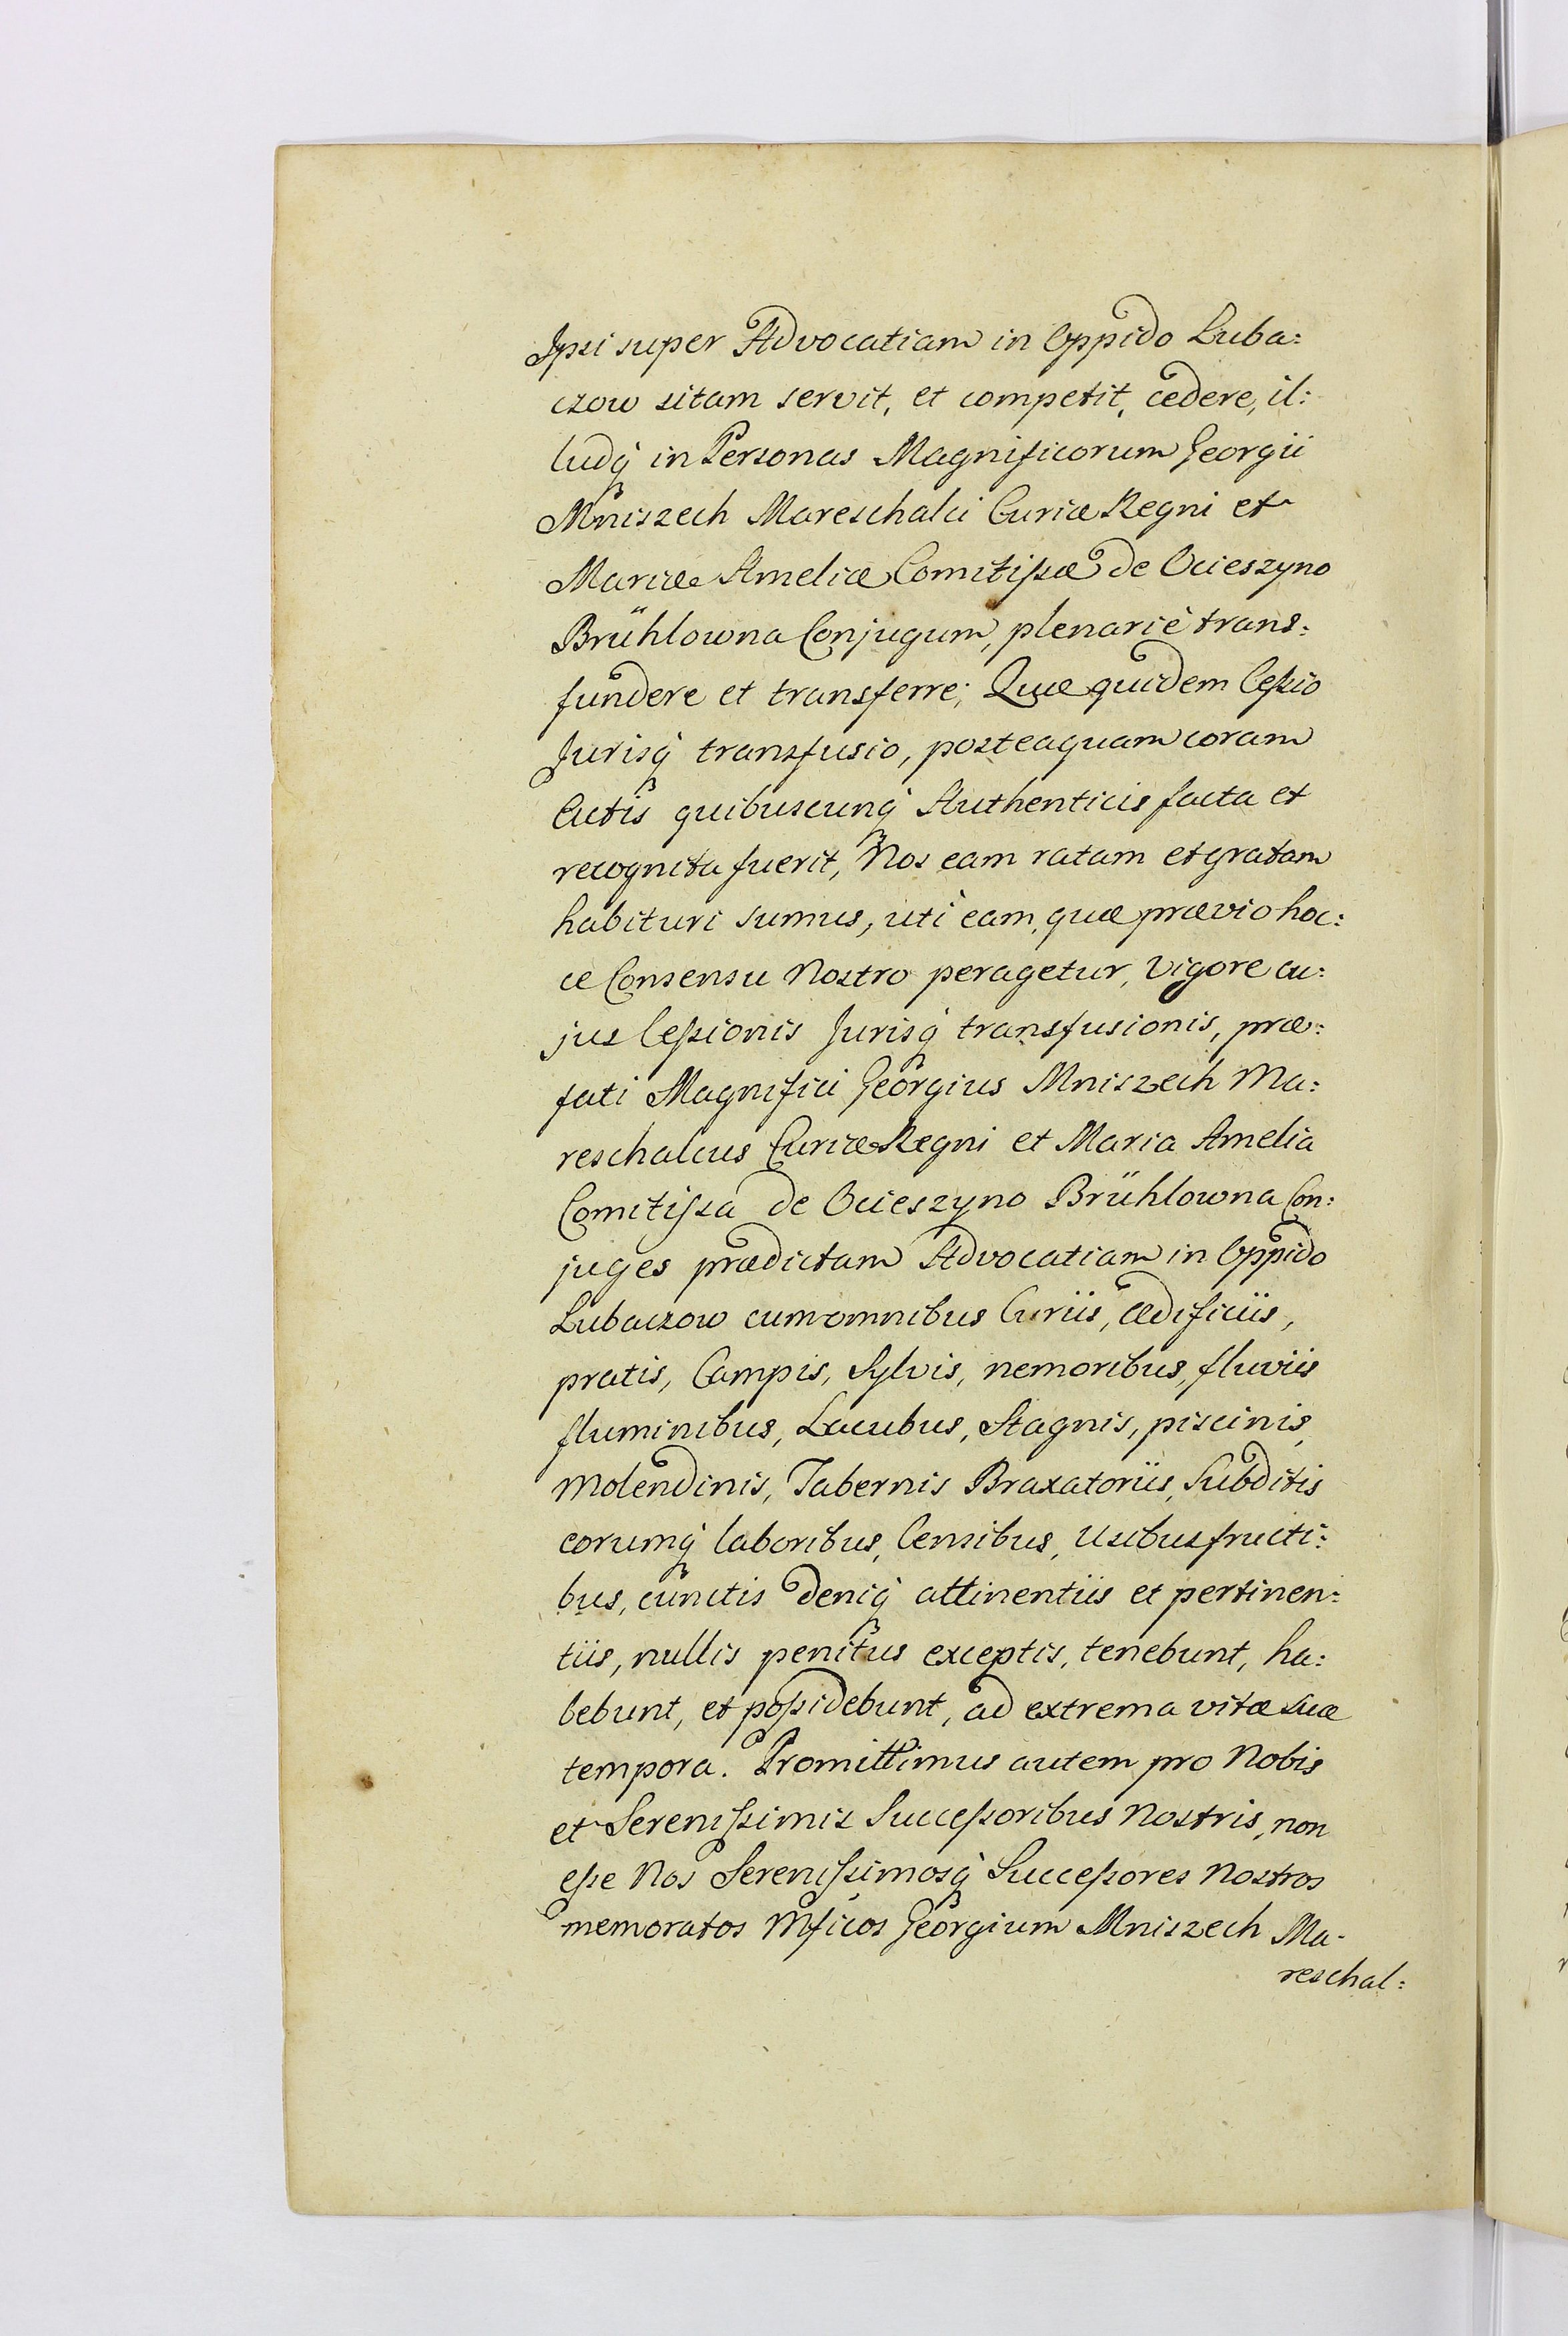 Ipsi super Advocatiam in Oppido Luba:
czow sitam servit, et competit, cedere, il:
ludq́ in Personas Magnificorum Georgii
Mniszech Mareschalci Curiæ Regni et
Mariæ Ameliæ Comitissæ de Ocieszyno
Brühlowna Conjugum, plenariè trans:
fundere et transferre; Quæ quidem Cessio
Jurisq́ transfusio, posteaquam coram
Actis quibuscunq́ Authenticis facta et
recognita fuerit, Nos eam ratam et gratam
habituri sumus, uti eam, quæ prævio hoc:
ce Consensu Nostro peragetur, Vigore cu:
jus Cessionis Jurisq́ transfusionis, præ:
fati Magnifici Georgius Mniszech Ma:
reschalcus Curiæ Regni et Maria Amelia
Comitissa de Ocieszyno Brühlowna Con:
juges prædictam Advocatiam in Oppido
Lubaczow cum omnibus Curiis, ædificiis,
pratis, Campis, Sylvis, nemoribus, fluviis
fluminibus, Lacubus, Stagnis, piscinis,
Molendinis, Tabernis Braxatoriis, Subditis
eorumq́ laboribus, Censibus, Usibusfructi:
bus, cunctis deniq́ attinentiis et pertinen:
tiis, nullis penitus exceptis, tenebunt, ha:
bebunt, et possidebunt, ad extrema vitæ suæ
tempora. Promittimus autem pro Nobis
et Serenissimis Successoribus Nostris, non
esse Nos Serenissimosq́ Successores Nostros
memoratos Mficos Georgium Mniszech Ma-
reschal: